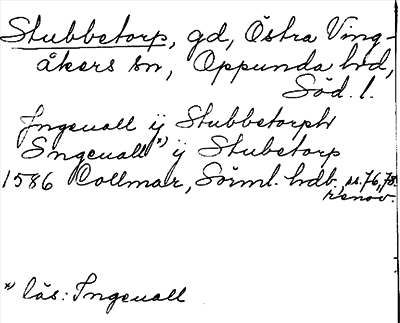 Stubbetorp, gd, Östra Ving-
åkers sn, Oppunda hd,
Söd. l.
Jngeuall ÿ Stubbetorph
Sngeuall *) ÿ Stubetorp
1586 Collmar, Sörml. hdb., ss. 76, 78.
renov.
*) läs: Ingeuall